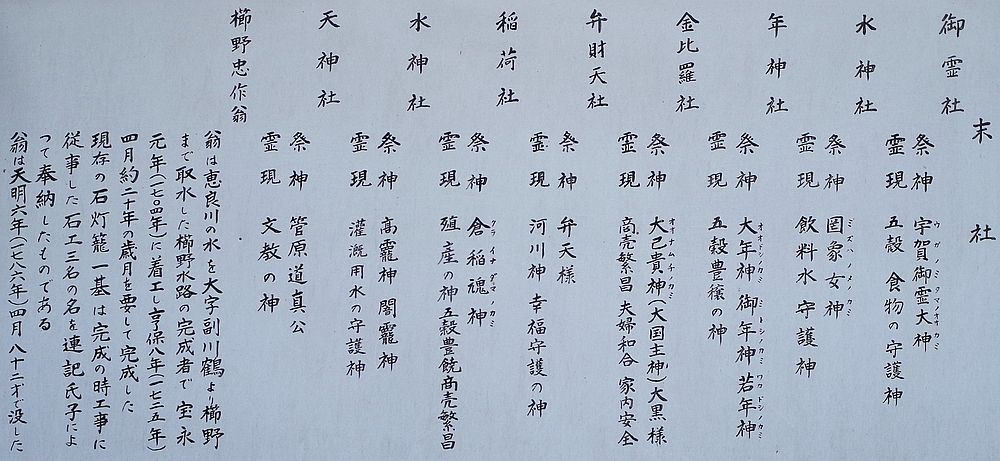 末社
御霊社
祭神 宇賀御霊大神
ウガノミタマノオオカミ
霊現 五穀 食物の守護神
水神社
祭神 罔象女神
ミズハノメノカミ
霊現 飲料水 守護神
年神社
祭神 大年神 御年神 若年神
オオドシノカミ ミトシノカミ ワカドシノカミ
霊現 五穀豊穣の神
金比羅社
祭神 大己貴神(大国主神)大黒様
オオナムチノカミ
霊現 商売繁昌 夫婦和合 家内安全
弁財天社
祭神 弁天様
霊現 河川神 幸福守護の神
稲荷社
祭神 倉稲魂神
クライナダマノカミ
霊現 殖産の神 五穀豊饒商売繁昌
水神社
祭神 高龗神 闇龗神
霊現 灌漑用水の守護神
天神社
祭神 管原道真公
霊現 文教の神
櫛野忠作翁
翁は恵良川の水を大字副川鶴より櫛野
まで取水した櫛野水路の完成者で 宝永
元年(一七〇四年)に着工し享保八年(一七二五年)
四月約二十年の歳月を要して完成した
現存の石灯籠一基は完成の時工事に
従事した石工三名の名を連記氏子によ
って奉納したものである
翁は天明六年(一七八六年)四月 八十二才で没した